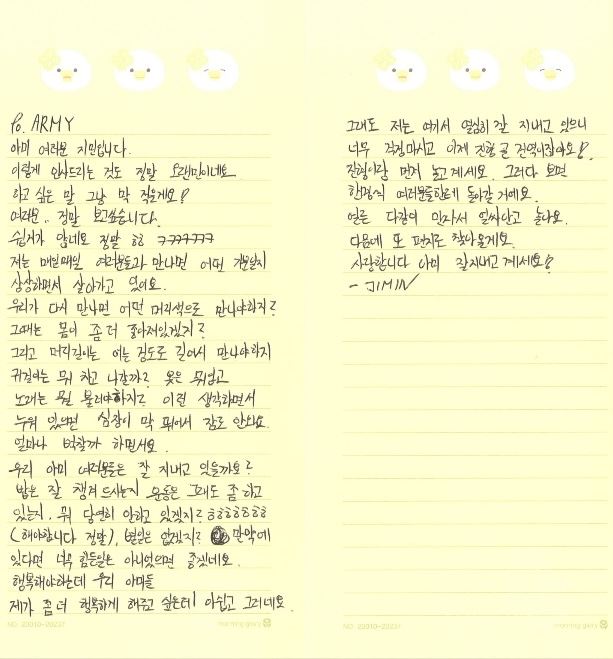 To. ARMY
아미 여러분 지민입니다.
이렇게 인사드리는 것도 정말 오랜만이네요
하고 싶은 말 그냥 막 적을게요!
여러분.. 정말 보고싶습니다.
쉽거가 않네요 정말 ㅎㅎ ㅋㅋㅋㅋㅋㅋㅋ
저는 매일매일 여러분들과 만나면 어떤 기분일지
상상하면서 살아가고 있어요.
우리가 다시 만나면 어떤 머리색으로 만나야하지?
그때는 몸이 좀 더 좋아져있겠지?
그리고 머리길이는 어느 정도로 길어서 만나야하지
귀걸이는 뭐 차고 나갈까? 옷은 뭐입고
노래는 뭘 불러야하지? 이런 생각하면서
누워 있으면 심장이 막 뛰어서 잠도 안와요.
얼마나 벅찰까 하면서요.
우리 아미 여러분들은 잘 지내고 있을까요?
밥은 잘 챙겨 드시는지 운동은 그래도 좀 하고
있는지. 뭐 당연히 안하고 있겠지? ㅎㅎㅎㅎㅎㅎㅎ
(해야합니다 정말). 별일은 없겠지? 만약에
있다면 너무 힘든일은 아니었으면 좋겠네요.
행복해야하는데 우리 아미들
제가 좀 더 행복하게 해주고 싶은데! 아쉽고 그러네요.
NO. 23010-20237
morning glory
그래도 저는 여기서 열심히 잘 지내고 있으니
너무 걱정마시고 이제 진형 곧 전역이잖아요!
진형이랑 먼저 놀고 계세요. 그러다 보면
한명씩 여러분들한테 돌아갈 거예요.
얼른 다같이 만나서 얼싸안고 놀아요.
다음에 또 편지로 찾아올게요.
사랑합니다 아미 잘지내고 계세요!
- JIMIN
NO. 23010-20237
morning glory